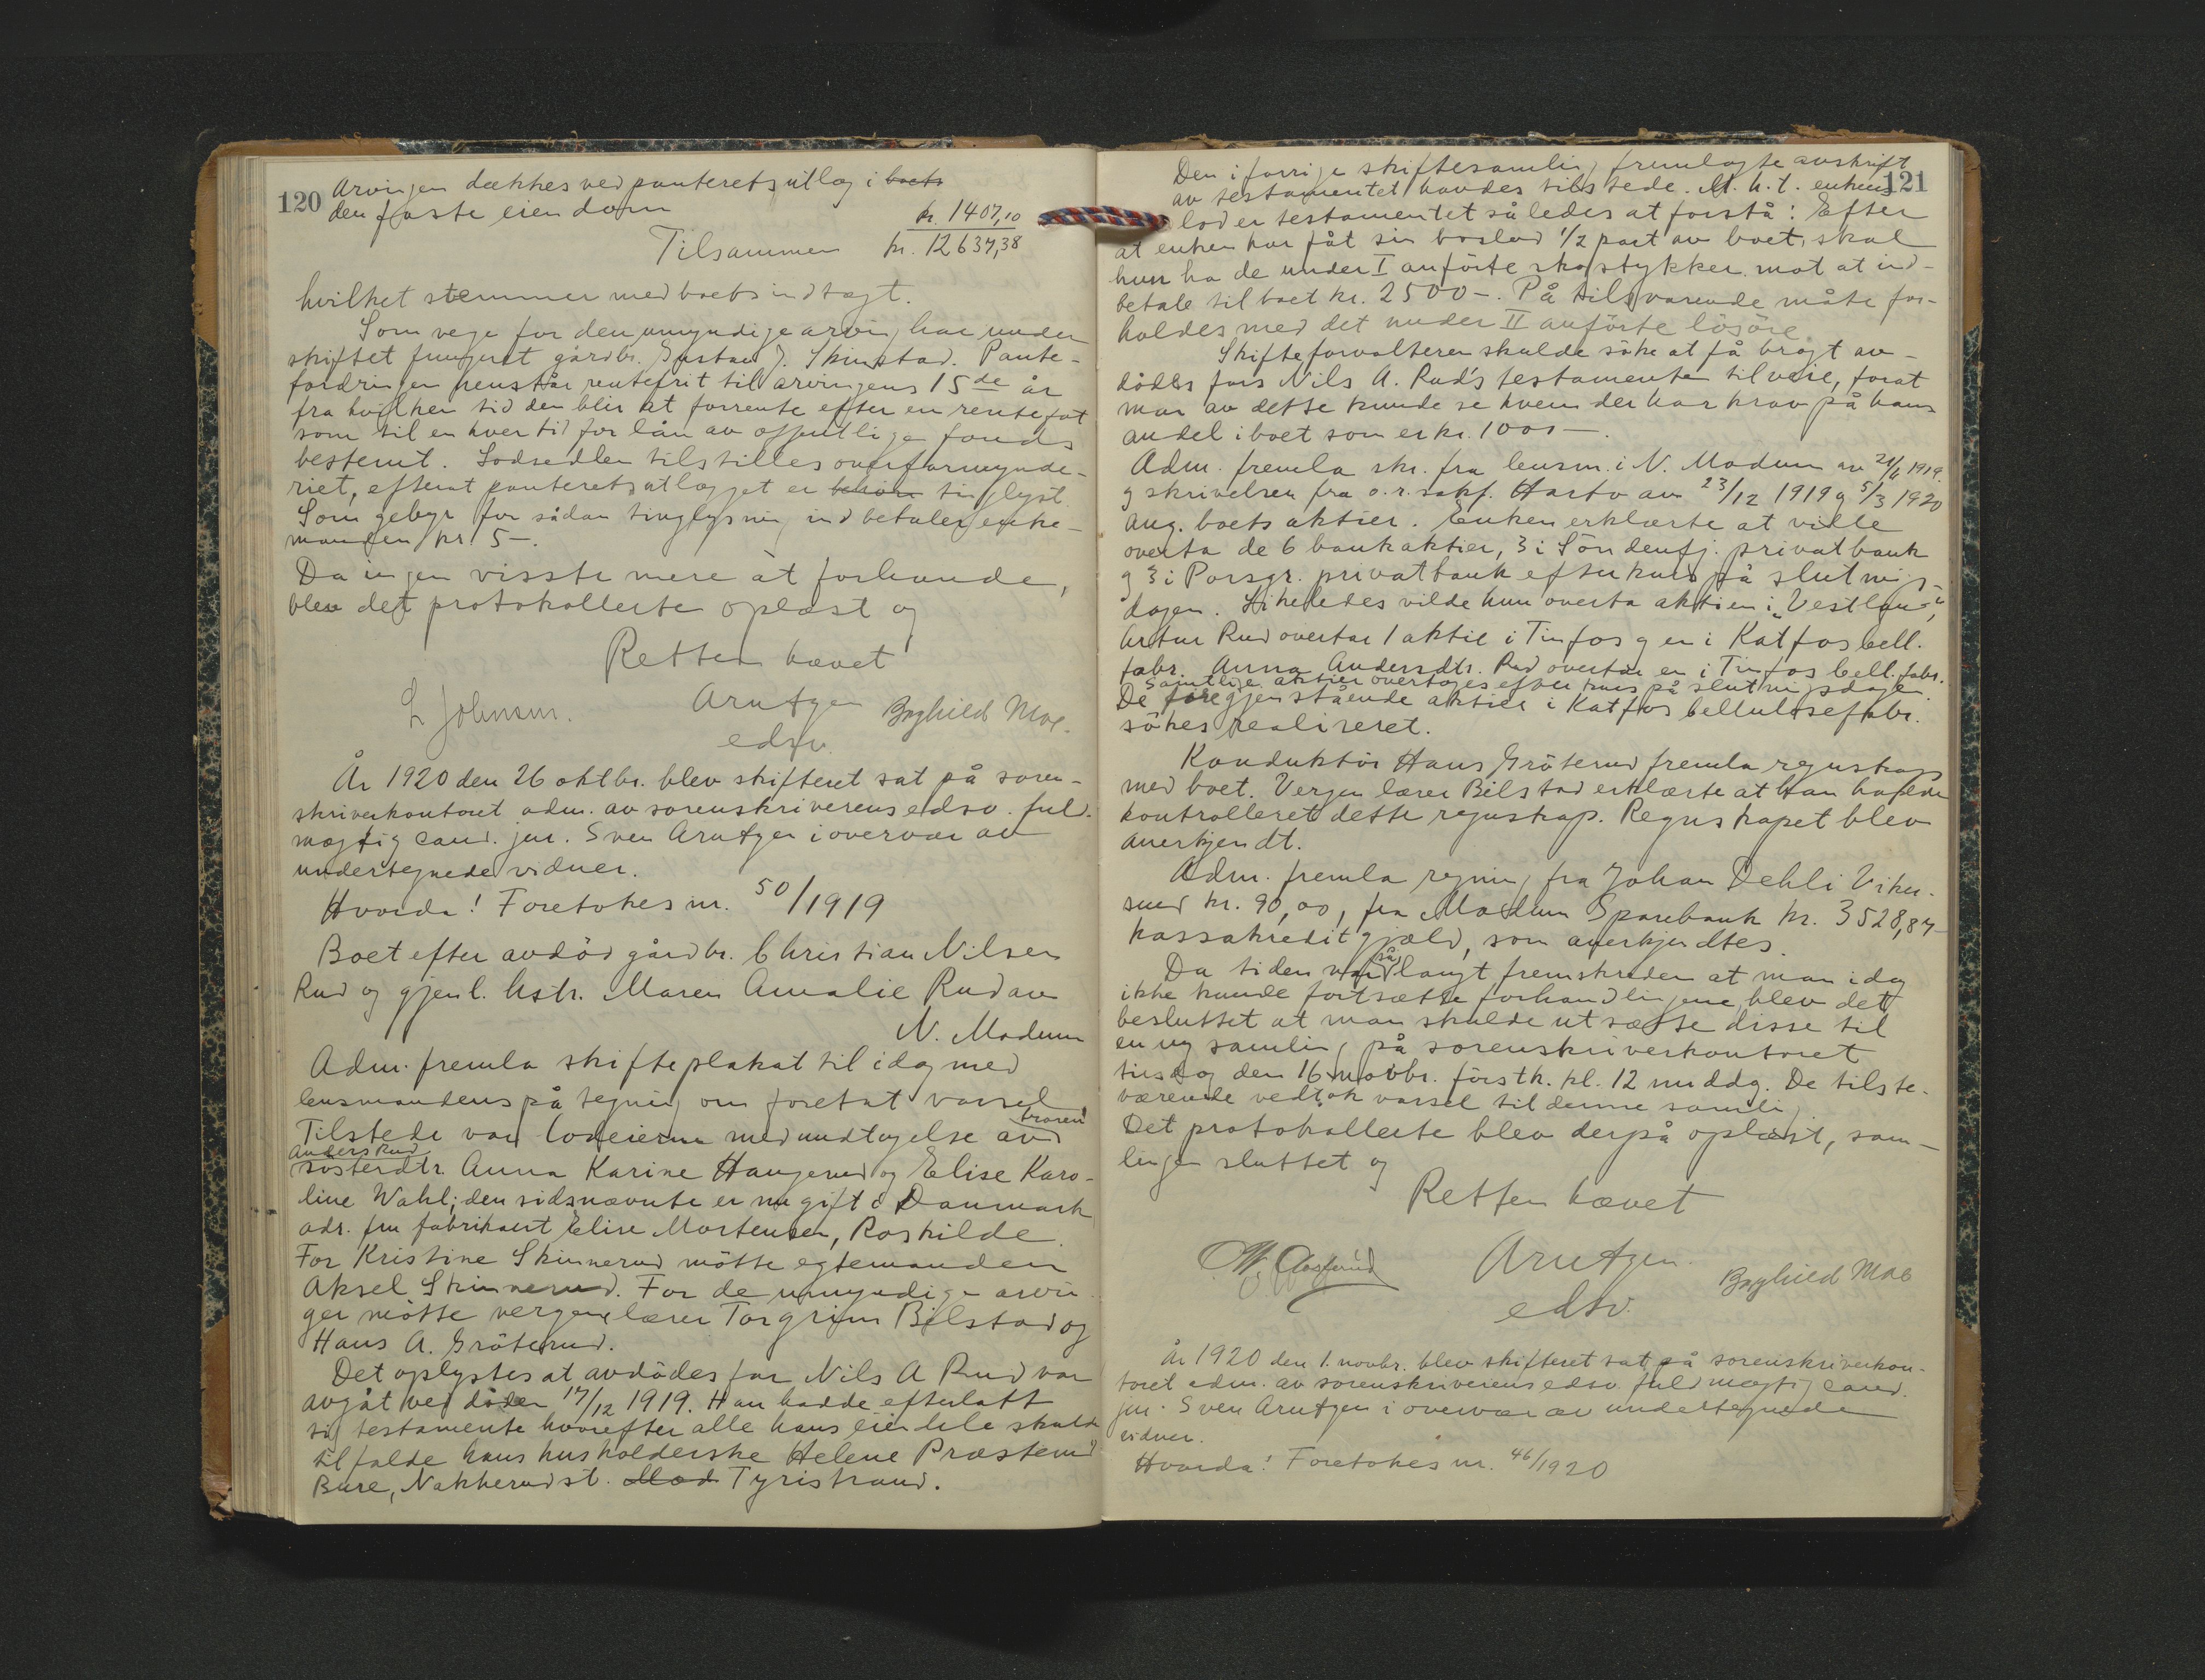 120
Arvingen dækkes ved panteretsutlæg i boets
den faste eiendom kr. 1407,10
Tilsammen kr. 12634,38
hvilket stemmer med boets indtægt.
Som verge for den umyndige arving har under
skiftet fungert gårdbr. Gustav J. Skinstad. Pante-
fordringen henstår rentefrit til arvingens 15de år
fra hvilken tid den blir at forrente efter en rentefot
som til enhver tid for lån av offentlige fonds
bestemt. Lodsedlen tilstilles overformynde-
riet, efterat panteretsutlægget er tinglyst.
Som gebyr for sådan tinglysning indbetaler enke-
manden kr. 5-.
Da ingen visste mere at forhandle,
blev det protokollerte oplæst og
Retten hævet
L Johnsen. Arntzen Brghild Moe.
edsv.
År 1920 den 26 oktbr. blev skifteret sat på soren-
skriverkontoret adm. av sorenskriverens edsv. ful.
mægtig cand. jur. Sven Arntzen i overvær av
undertegnede vidner.
Hvorda! Foretokes nr. 50/1919
Boet efter avdöd gårdbr. Christian Nilsen
Rud og gjenl. hstr. Maren Amalie Rud av
N. Modum
Adm. fremla skifteplakat til idag med
lensmandens påtegning om foretat varsel
Tilstede var lodeierne med undtagelse av broren
Anders Rud
søsterdtr Anna Karine Haugerud og Elise Karo-
line Wahl; den sidsnævnte er nu gift i Danmark
adr. fru fabrikant Elise Mortensen, Roskilde.
For Kristine Skinnerud mötte egtemanden
Aksel Skinnerud. For de umyndige arvin-
ger mötte vergene lærer Torgrim Bilstad og
Hans A. Gröterud.
Det oplystes at avdödes far Nils A Rud var
avgåt ved döden 17/12 1919. Han hadde efterlatt
sig testamente hvorefter alle hans eiendele skulde
tilfalde hans husholderske Helene Præsterud
Bure, Nakkerud st. Mod Tyristrand.
121
Den i forrige skiftesamling fremlagte avskrift
av testamentet havdes tilstede. M. h. t. enkens
lod er testamentet således at forstå: Efter
at enken har fåt sin boslod 1/2 part av boet, skal
hun ha de under I anförte skogstykker mot at ind-
betale til boet kr. 2500-. På tilsvarende måte for-
holdes med det under II anförte lösöre.
Skifteforvalteren skulde söke at få bragt av-
dödes fars Nils A. Rud's testamente tilveie, forat
man av dette kunde se hvem der har krav på hans
andel i boet som er kr. 1000-.
Adm. fremla skr. fra lensm. i N. Modum av 21/11 1919.
og skrivelser fra o.r.sakf. Hasto av 23/12 1919 og 5/3 1920
ang. boets aktier. Enken erklærte at ville
overta de 6 bankaktier, 3 i Söndenfj. privatbank
og 3 i Porsgr. privatbank efter kurs på slutnings-
dagen. Likeledes vilde hun overta aktien i "Vestlandet",
Artur Rud overtar 1 aktie i Tinfos og en i Katfos cell.
fabr. Anna Andersdtr. Rud overtar en i Tinfos cell. fabr.
Samtlige aktier overtages efter kurs på slutningsdagen.
De gjenstående aktier i Katfos cellulosefabr.
sökes realiseret.
Konduktör Hans Gröterud fremla regnskap
med boet. Vergen lærer Bilstad erklærte at han hadde
kontrolleret dette regnskap. Regnskapet blev
anerkjendt.
Adm. fremla regning fra Johan Dehli Viker-
sund kr. 90,00, fra Modum Sparebank kr. 3528,84
kassakreditgjæld, som anerkjendtes.
Da tiden var så langt fremskreden at man idag
ikke kunde fortsætte forhandlingene, blev det
besluttet at man skulde utsætte disse til
en ny samling på sorenskriverkontoret
tirsdag den 16 novbr. förstk. kl. 12 middg. De tilste-
værende vedtok varsel til denne samling.
Det protokollerte blev derpå oplæst, sam-
lingen sluttet og
Retten hævet
Arntzen Brghild Moe
edsv.
År 1920 den 1. novbr. blev skifteret sat på sorenskriverkon-
toret adm. av sorenskriverens edsv. fuldmægtig cand.
jur. Sven Arntzen i overvær av undertegnede
vidner.
Hvorda! Foretokes nr. 46/1920